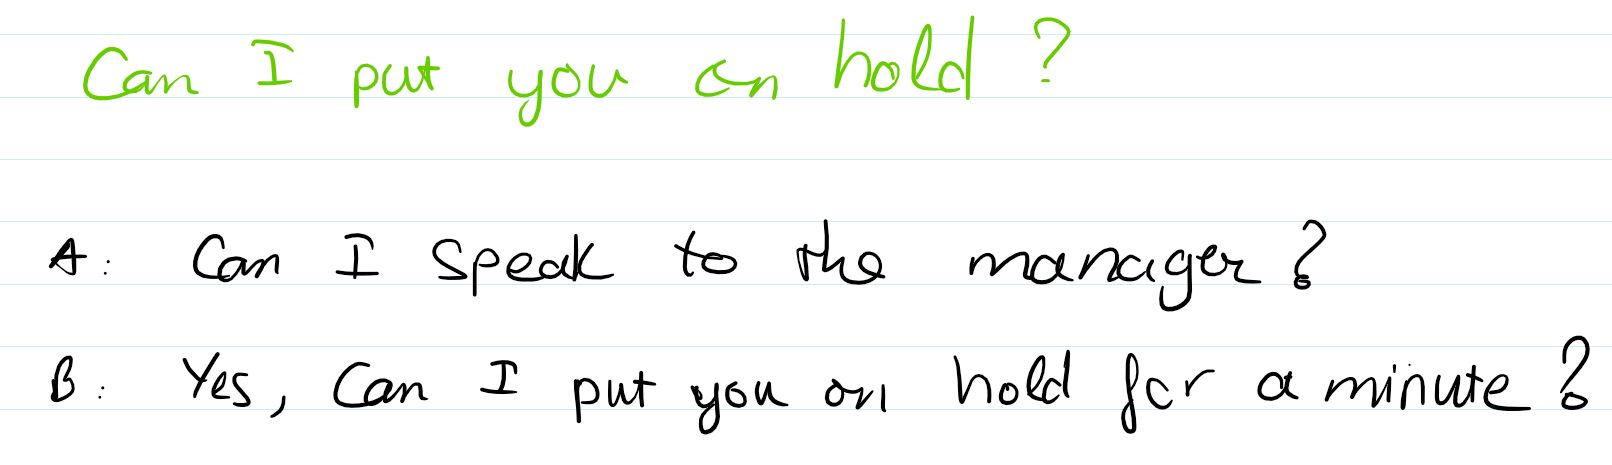 Can I put you on hold?
A: Can I speak to the manager?
B: Yes, Can I put you on hold for a minute?